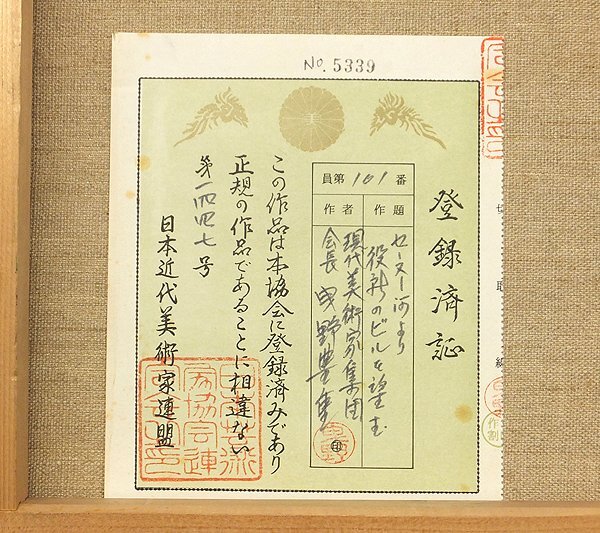 No. 5339
登録済証
員第101番
作題
セーヌ河より
役所のビルを望む
作者
現代美術家集団
会長
この作品は本協会に登録済みであり
正規の作品であることに相違ない
第一四四七号
日本近代美術家連盟
印